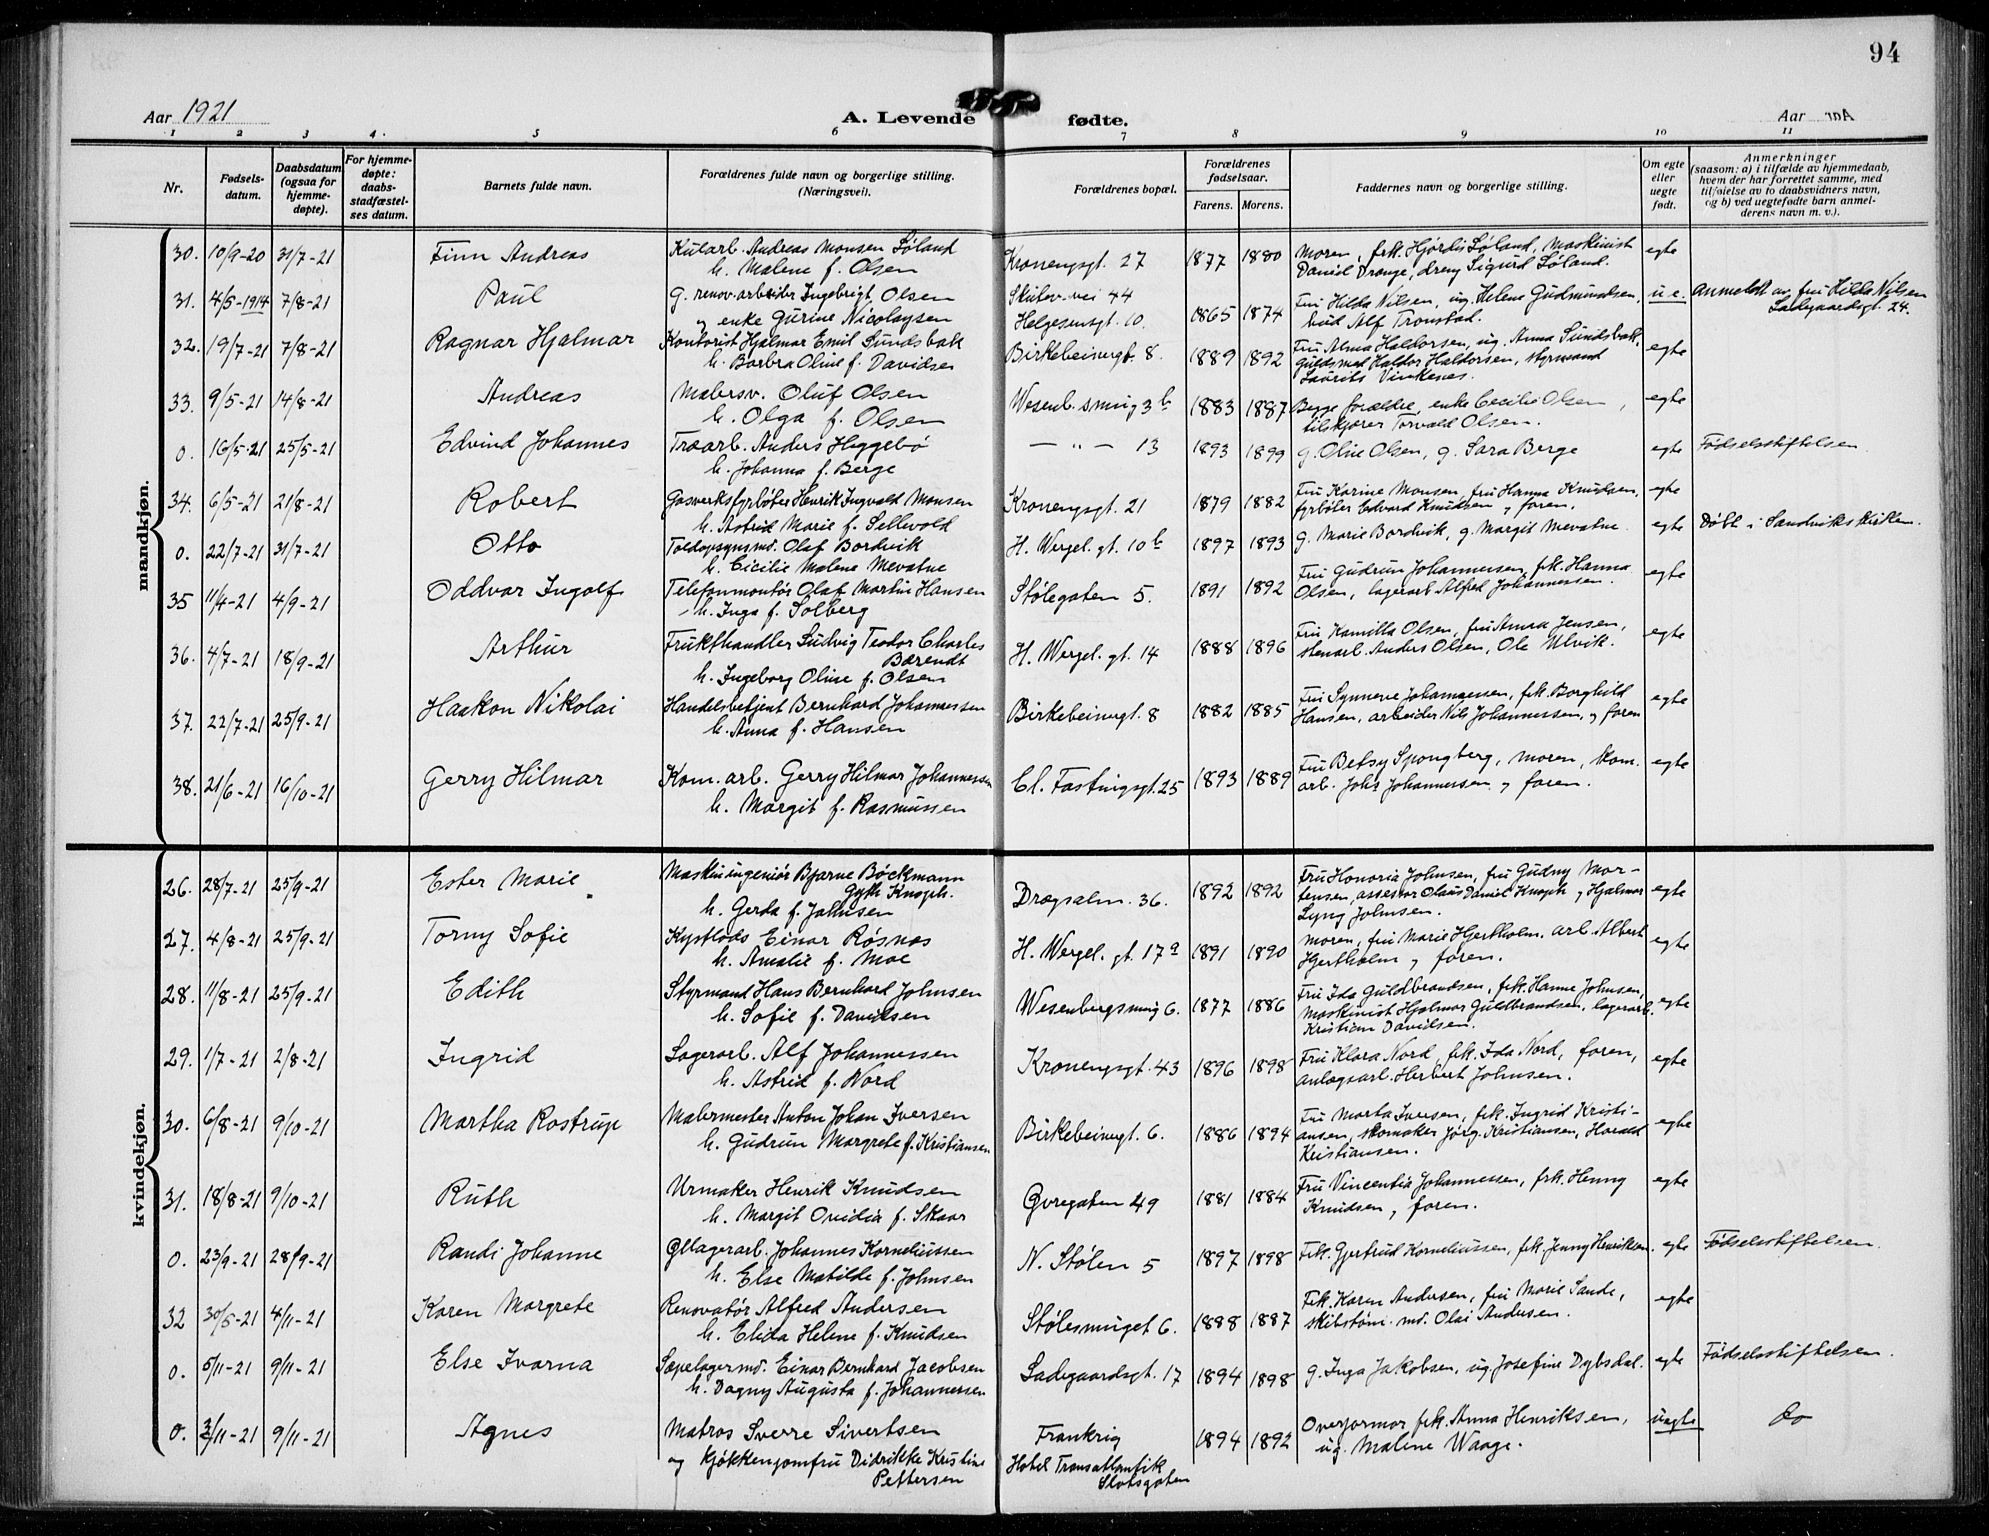 94
Aar 1921
A. Levende fødte.
Aar
1 2 3 4 5 6 7 8 9 10 11
Nr.
Fødselsdatum.
Daabsdatum (ogsaa for hjemmedøpte).
For hjemmedøpte: daabsstadfæstelses datum.
Barnets fulde navn.
Forældrenes fulde navn og borgerlige stilling. (Næringsveil).
Forældrenes bopæl.
Forældrenes fødselsaar.
Farens. Morens.
Faddernes navn og borgerlige stilling.
Om egte eller uegte født.
Anmerkninger (saasom: a) i tilfælde av hjemmedaab, hvem der har forrettet samme, med tilføielse av to daabsvidners navn, og b) ved uegtefødte barn anmelderens navn m. v.).
mandkjøn.
30. 10/9-20 31/7-21 Finn Andreas Kularb. Andreas Monsen Søland Kronengsgt. 27 1877 1880 Moren, frk. Hjørdis Søland, maskinist egte
h. Malene f. Olsen Daniel Drange, dreng Sigurd Søland.
31. 4/5-1914 7/8-21 Paul G. renov.arbeider Ingebrigt Olsen Skutev.vei 44 1865 1874 Fru Hilda Nilsen, ug. Helene Gudmundsen, u.e. Anmeldt av fru Hilda Nilsen
og enke Gurine Nicolaysen Helgesensgt. 10. bud Alf Tronstad. Ladegaardsgt. 24.
32. 19/7-21 7/8-21 Ragnar Hjalmar Kontorist Hjalmar Emil Sundsbak Birkebeinergt. 8. 1889 1892 Fru Alma Haldorsen, ug. Anna Sundsbak, egte
h. Borbra Oline f. Davidsen guldsmed Haldor Haldorsen, styrmand
Laurits Vinkenes.
33. 9/5-21 14/8-21 Andreas Malersv. Oluf Olsen Wesenb.smug 3b 1883 1887 Begge forældre, enke Cecilie Olsen, egte
h. Olga f. Olsen tilskjærer Torvald Olsen.
0. 16/5-21 25/5-21 Edvind Johannes Træarb. Anders Heggebø — " — 13 1893 1899 g. Oline Olsen, g. Sara Berge egte Fødselsstiftelsen
h. Johanna f. Berge
34. 6/5-21 21/8-21 Robert Gasverksfyrbøter Henrik Ingvald Monsen Kronengsgt. 21 1879 1882 Fru Karine Monsen, fru Hanna Knudsen, egte
h. Astrid Marie f. Sellevold fyrbøter Edvard Knudsen og faren.
0. 22/7-21 31/7-21 Otto Toldopsynsmd. Olaf Bordvik H. Wergel. gt. 10b 1897 1893 g. Marie Bordvik, g. Margit Mevatne. egte Døbt i Sandvikskirken.
h. Cicilie Malene Mevatne
35 11/4-21 4/9-21 Oddvar Ingolf Telefonmontør Olaf Martin Hansen Stølegaten 5. 1891 1892 Fru Gudrun Johannessen, frk. Hanna egte
h. Inga f. Solberg Olsen, lagerarb. Alfred Johannessen.
36. 4/7-21 18/9-21 Arthur Frukthandler Ludvig Teodor Charles H. Wergel. gt. 14 1888 1896 Fru Kamilla Olsen, fru Anna Jensen, egte
Bærendt stenarb. Anders Olsen, Ole Ulvik.
h. Ingeborg Oline f. Olsen
37. 22/7-21 25/9-21 Haakon Nikolai Handelsbetjent Bernhard Johannessen Birkebeinergt. 8 1882 1885 Fru Synneve Johannessen, frk. Borghild egte
h. Anna f. Hansen Hansen, arbeider Nils Johannessen, og faren
38. 21/6-21 16/10-21 Gerry Hilmar Kom. arb. Gerry Hilmar Johannessen Cl. Fastingsgt. 25 1893 1889 Fru Betsy Spongberg, moren, kom. egte
h. Margit f. Rasmussen arb. Johs Johannessen og faren.
kvindekjøn.
26. 28/7-21 25/9-21 Ester Marie Maskiningeniør Bjarne Bøckmann Drægsalm. 36. 1892 1892 Fru Honoria Johnsen, fru Gudny Mor- egte
Gyth Knoph. tensen, assessor Olaus Daniel Knoph og Hjalmar
h. Gerda f. Johnsen Lyng Johnsen.
27. 4/8-21 25/9-21 Torny Sofie Kystlods Einar Røsnæs H. Wergel. gt. 17a 1891 1890 moren, fru Marie Hjertholm, arb. Albert egte
h. Amalie f. Moe Hjertholm og faren.
28. 11/8-21 25/9-21 Edith Styrmand Hans Bernhard Johnsen Wesenbergsmug 6. 1877 1886 Fru Ida Guldbrandsen, frk. Hanne Johnsen, egte
h. Sofie f. Davidsen maskinist Hjalmar Guldbrandsen, lagerarb.
Kristian Davidsen.
29. 1/7-21 2/8-21 Ingrid Lagerarb. Alf Johannessen Kronengsgt. 43 1896 1898 Fru Klara Nord, frk. Ida Nord, faren, egte
h. Astrid f. Nord anlægsarb. Herbert Johnsen.
30. 6/8-21 9/10-21 Martha Rostrup Malermester Anton Johan Iversen Birkebeinergt. 6. 1886 1894 Fru Marta Iversen, frk. Ingrid Kristi- egte
h. Gudrun Margrete f. Kristiansen ansen, skomaker Jørg. Kristiansen, Harald
Kristiansen.
31. 18/8-21 9/10-21 Ruth Urmaker Henrik Knudsen Øvregaten 49 1881 1884 Fru Vincentia Johannessen, frk. Henny egte
h. Margit Ovidia f. Skaar Knudsen, faren.
0. 23/9-21 28/9-21 Randi Johanne Øllagerarb. Johannes Korneliussen N. Stølen 5 1897 1898 Frk. Gjertrud Korneliussen, frk. Jenny Henriksen. egte Fødselsstiftelsen.
h. Else Matilde f. Johnsen
32 30/5-21 4/11-21 Karen Margrete Renovatør Alfred Andersen Stølesmuget 6. 1888 1887 Frk. Karen Andersen, fru Marie Sande, egte
h. Elida Helene f. Knudsen skibstøm. md. Olai Andersen.
0. 5/11-21 9/11-21 Else Ivarna Sæpelagermd. Einar Bernhard Jacobsen Ladegaardsgt. 17 1894 1898 g. Inga Jakobsen, ug. Josefine Dybsdal. egte Fødselsstiftelsen.
h. Dagny Augusta f. Johannessen
0. 3/11-21 9/11-21 Agnes Matros Sverre Sivertsen Frankrig 1894 1892 Overjormor frk. Anna Henriksen, uegte do
og kjøkkenjomfru Didrikke Kristine Hotel Transatlantik ug. Malene Waage.
Pettersen Slotsgaten